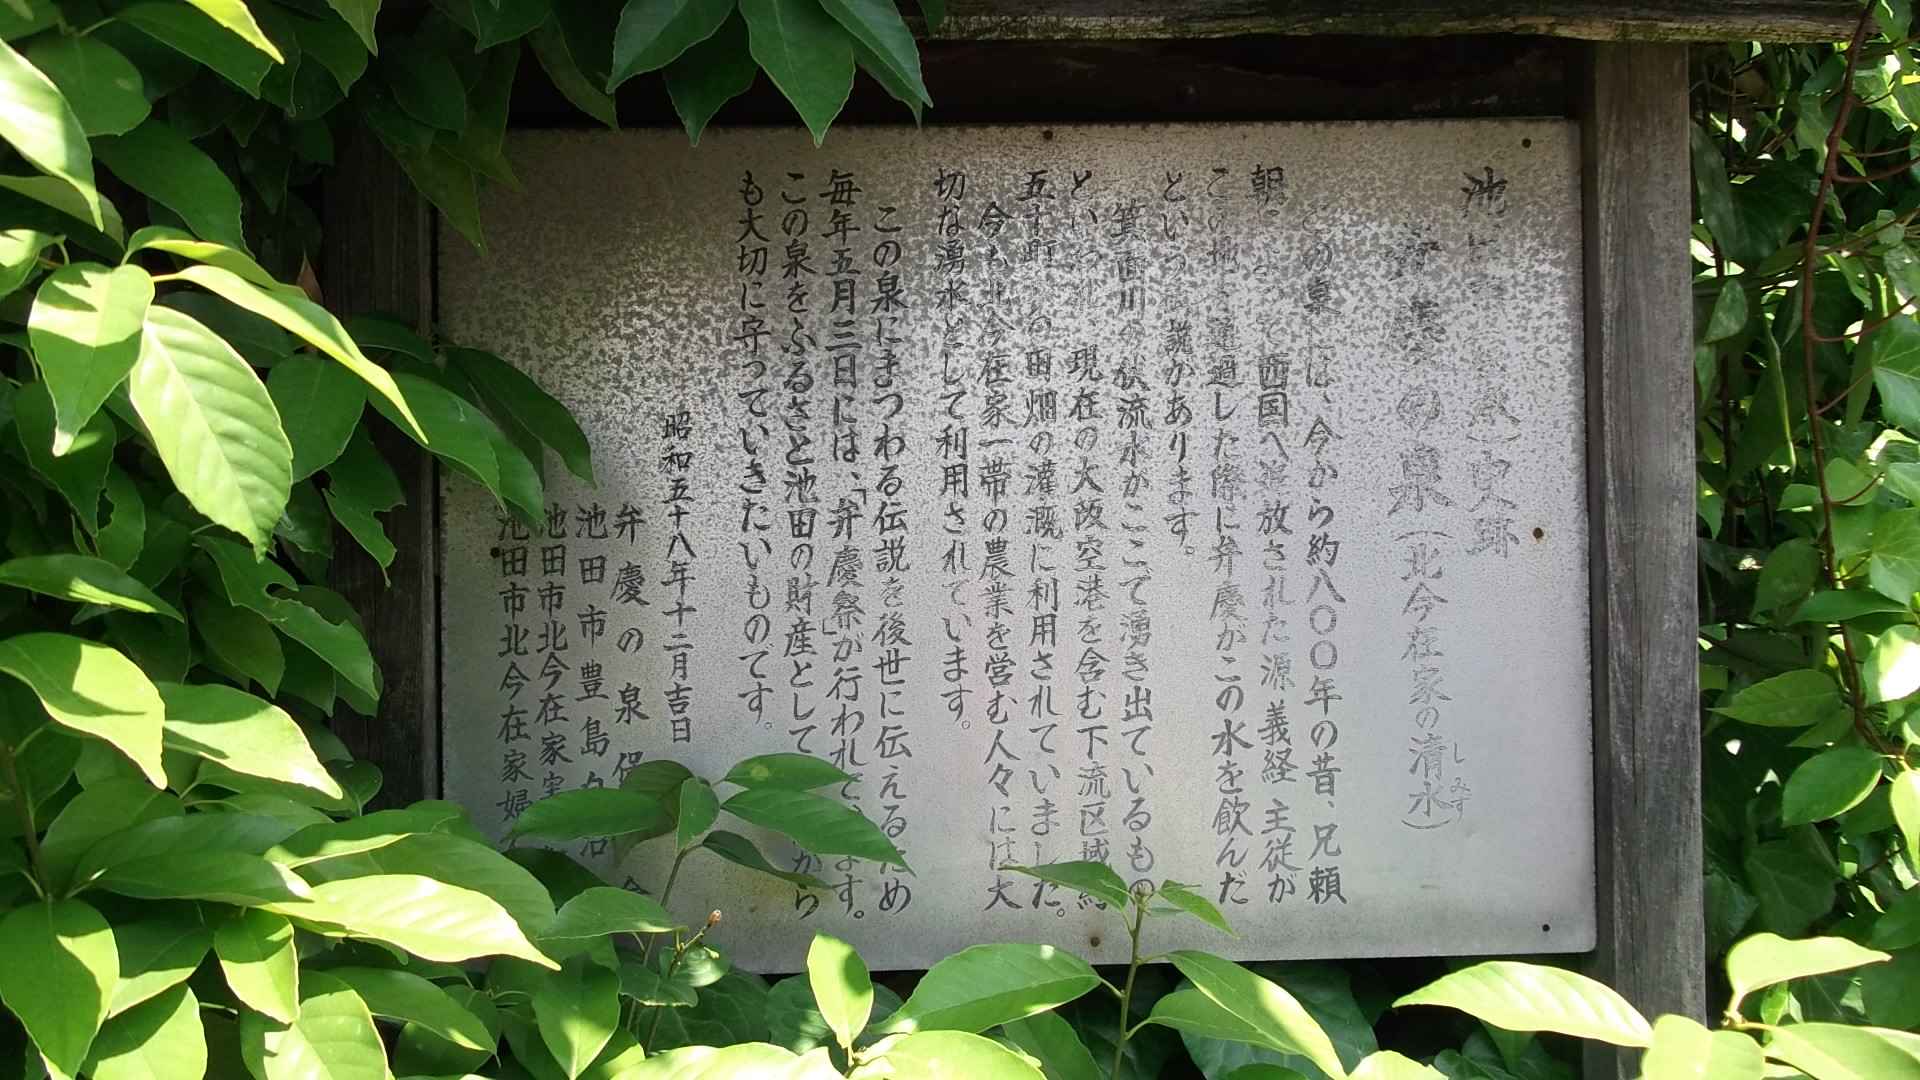 池 史跡
弁慶の泉（北今在家の清水）
しみず
この泉には、今から約八〇〇年の昔、兄頼
朝によって西国へ追放された源義経主従が
この地を通過した際に弁慶がこの水を飲んだ
という伝説があります。
箕面川の伏流水がここで湧き出ているもの
といわれ、現在の大阪空港を含む下流区域
五十町 の田畑の灌漑に利用されていました。
今も北今在家一帯の農業を営む人々には大
切な湧水として利用されています。
この泉にまつわる伝説を後世に伝えるため
毎年五月三日には、「弁慶祭」が行われて、 ます。
この泉をふるさと池田の財産として から
も大切に守っていきたいものです。
昭和五十八年十二月吉日
弁慶の泉保 会
池田市豊島
池田市北今在家実
池田市北今在家婦